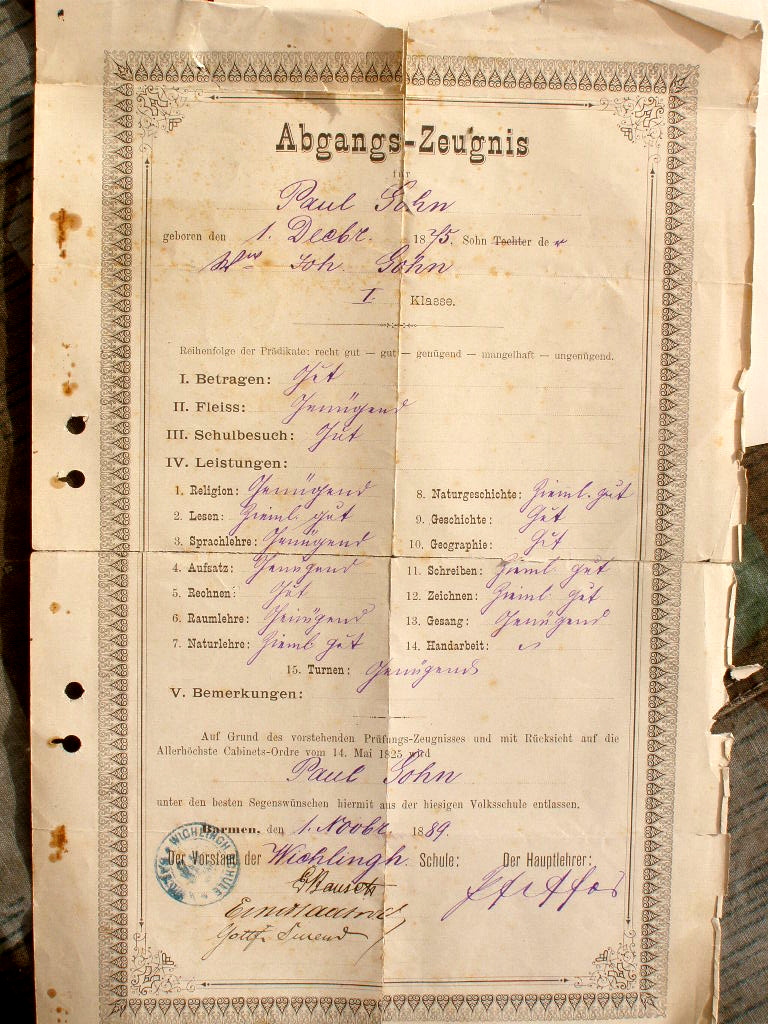 Abgangs-Zeugnis
für
Paul Göhn
geboren den 1. Decbr. 1875. Sohn Tochter der
Wwe Joh. Göhn
I Klasse.
Reihenfolge der Prädikate: recht gut — gut — genügend — mangelhaft — ungenügend.
I. Betragen: Gut
II. Fleiss: Genügend
III. Schulbesuch: Gut
IV. Leistungen:
1. Religion: Genügend
2. Lesen: Zieml. gut
3. Sprachlehre: Genügend
4. Aufsatz: Genügend
5. Rechnen: Gut
6. Raumlehre: Genügend
7. Naturlehre: Zieml. gut
8. Naturgeschichte: Zieml. gut
9. Geschichte: Gut
10. Geographie: Gut
11. Schreiben: Zieml. gut
12. Zeichnen: Zieml. gut
13. Gesang: Genügend
14. Handarbeit:
15. Turnen: Genügend
V. Bemerkungen:
Auf Grund des vorstehenden Prüfungs-Zeugnisses und mit Rücksicht auf die
Allerhöchste Cabinets-Ordre vom 14. Mai 1825 wird
Paul Göhn
unter den besten Segenswünschen hiermit aus der hiesigen Volksschule entlassen.
Barmen, den 1. Novbr. 1889.
Der Vorstand der Wichlingh. Schule: Der Hauptlehrer: